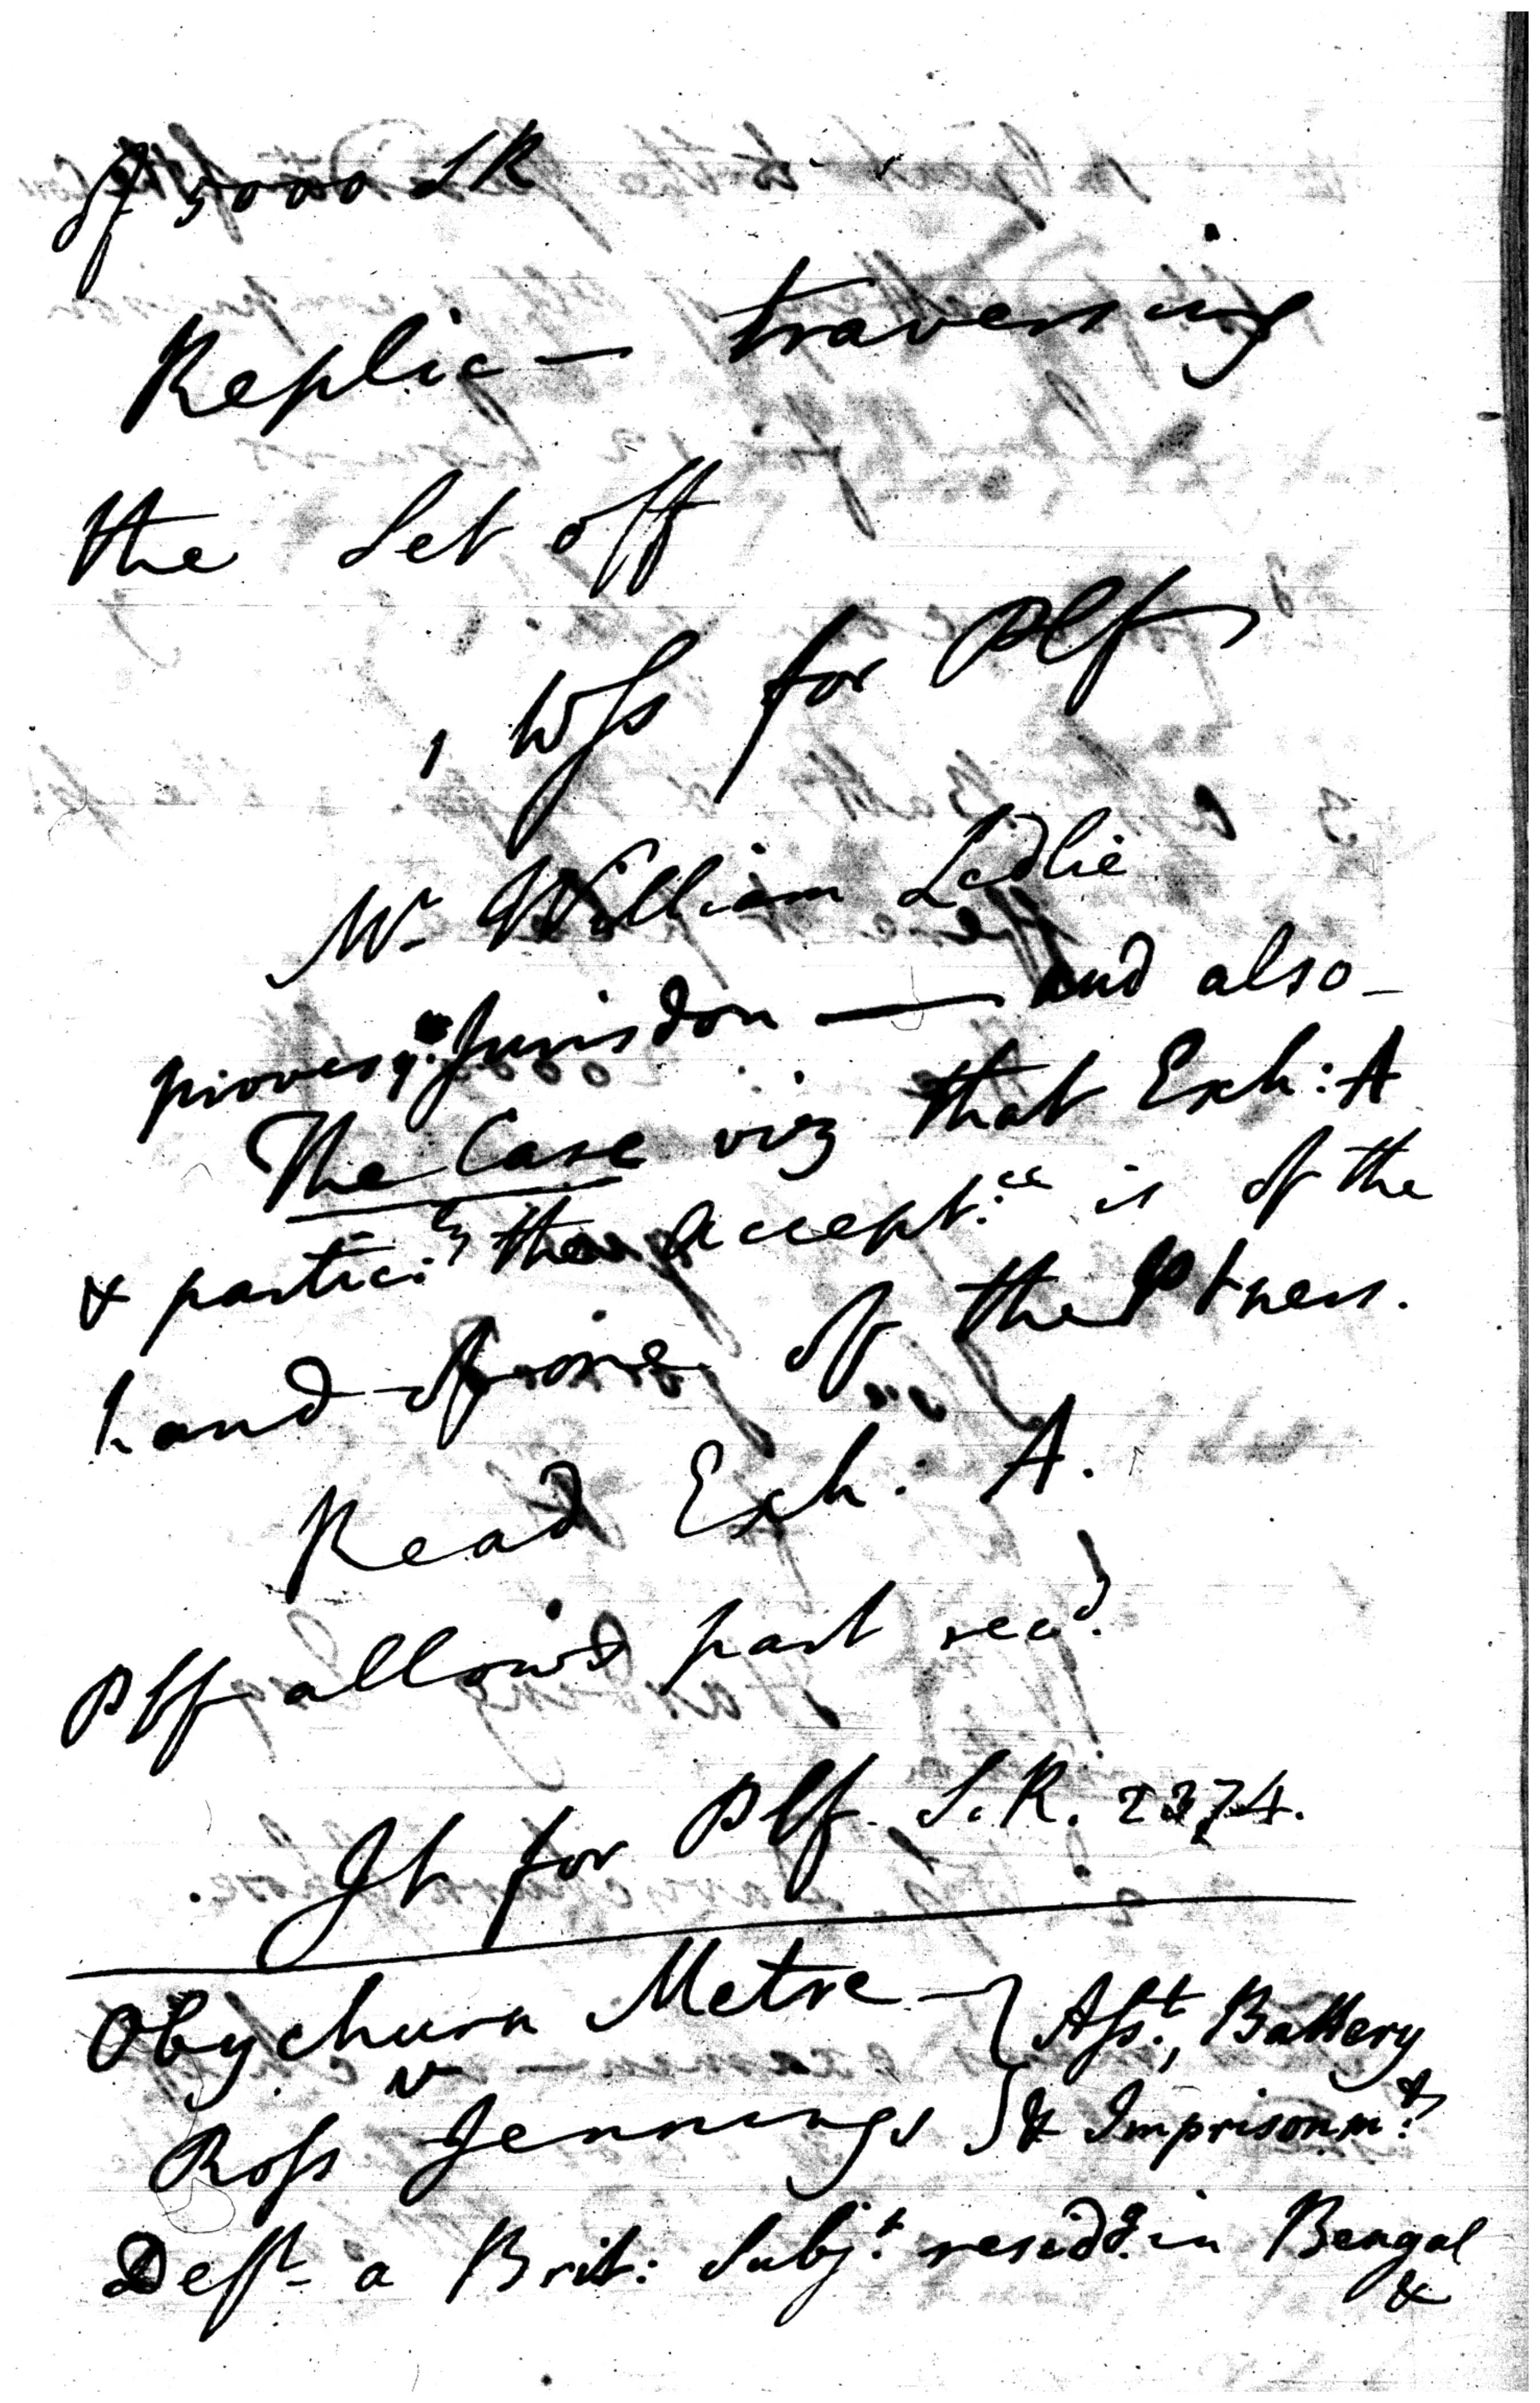 of 5000 S R
Replic — traversing
the Set off
1 Wss for Plf
Mr William Ledlie
proves ye. Jurisdon — and also —
The Case viz that Exh: A
& partic:ly the Accept:ce is of the
hand of one of the Ptners.
Read Exh: A.
Plf allow'd part rec.d
Jt for Plf. S.R. 2374.
Obychurn Metre —
v
Ross Jennings
} Ass.t, Battery
& Imprisonm.t
Deft a Brit: Subj.t resid.g in Bengal
&